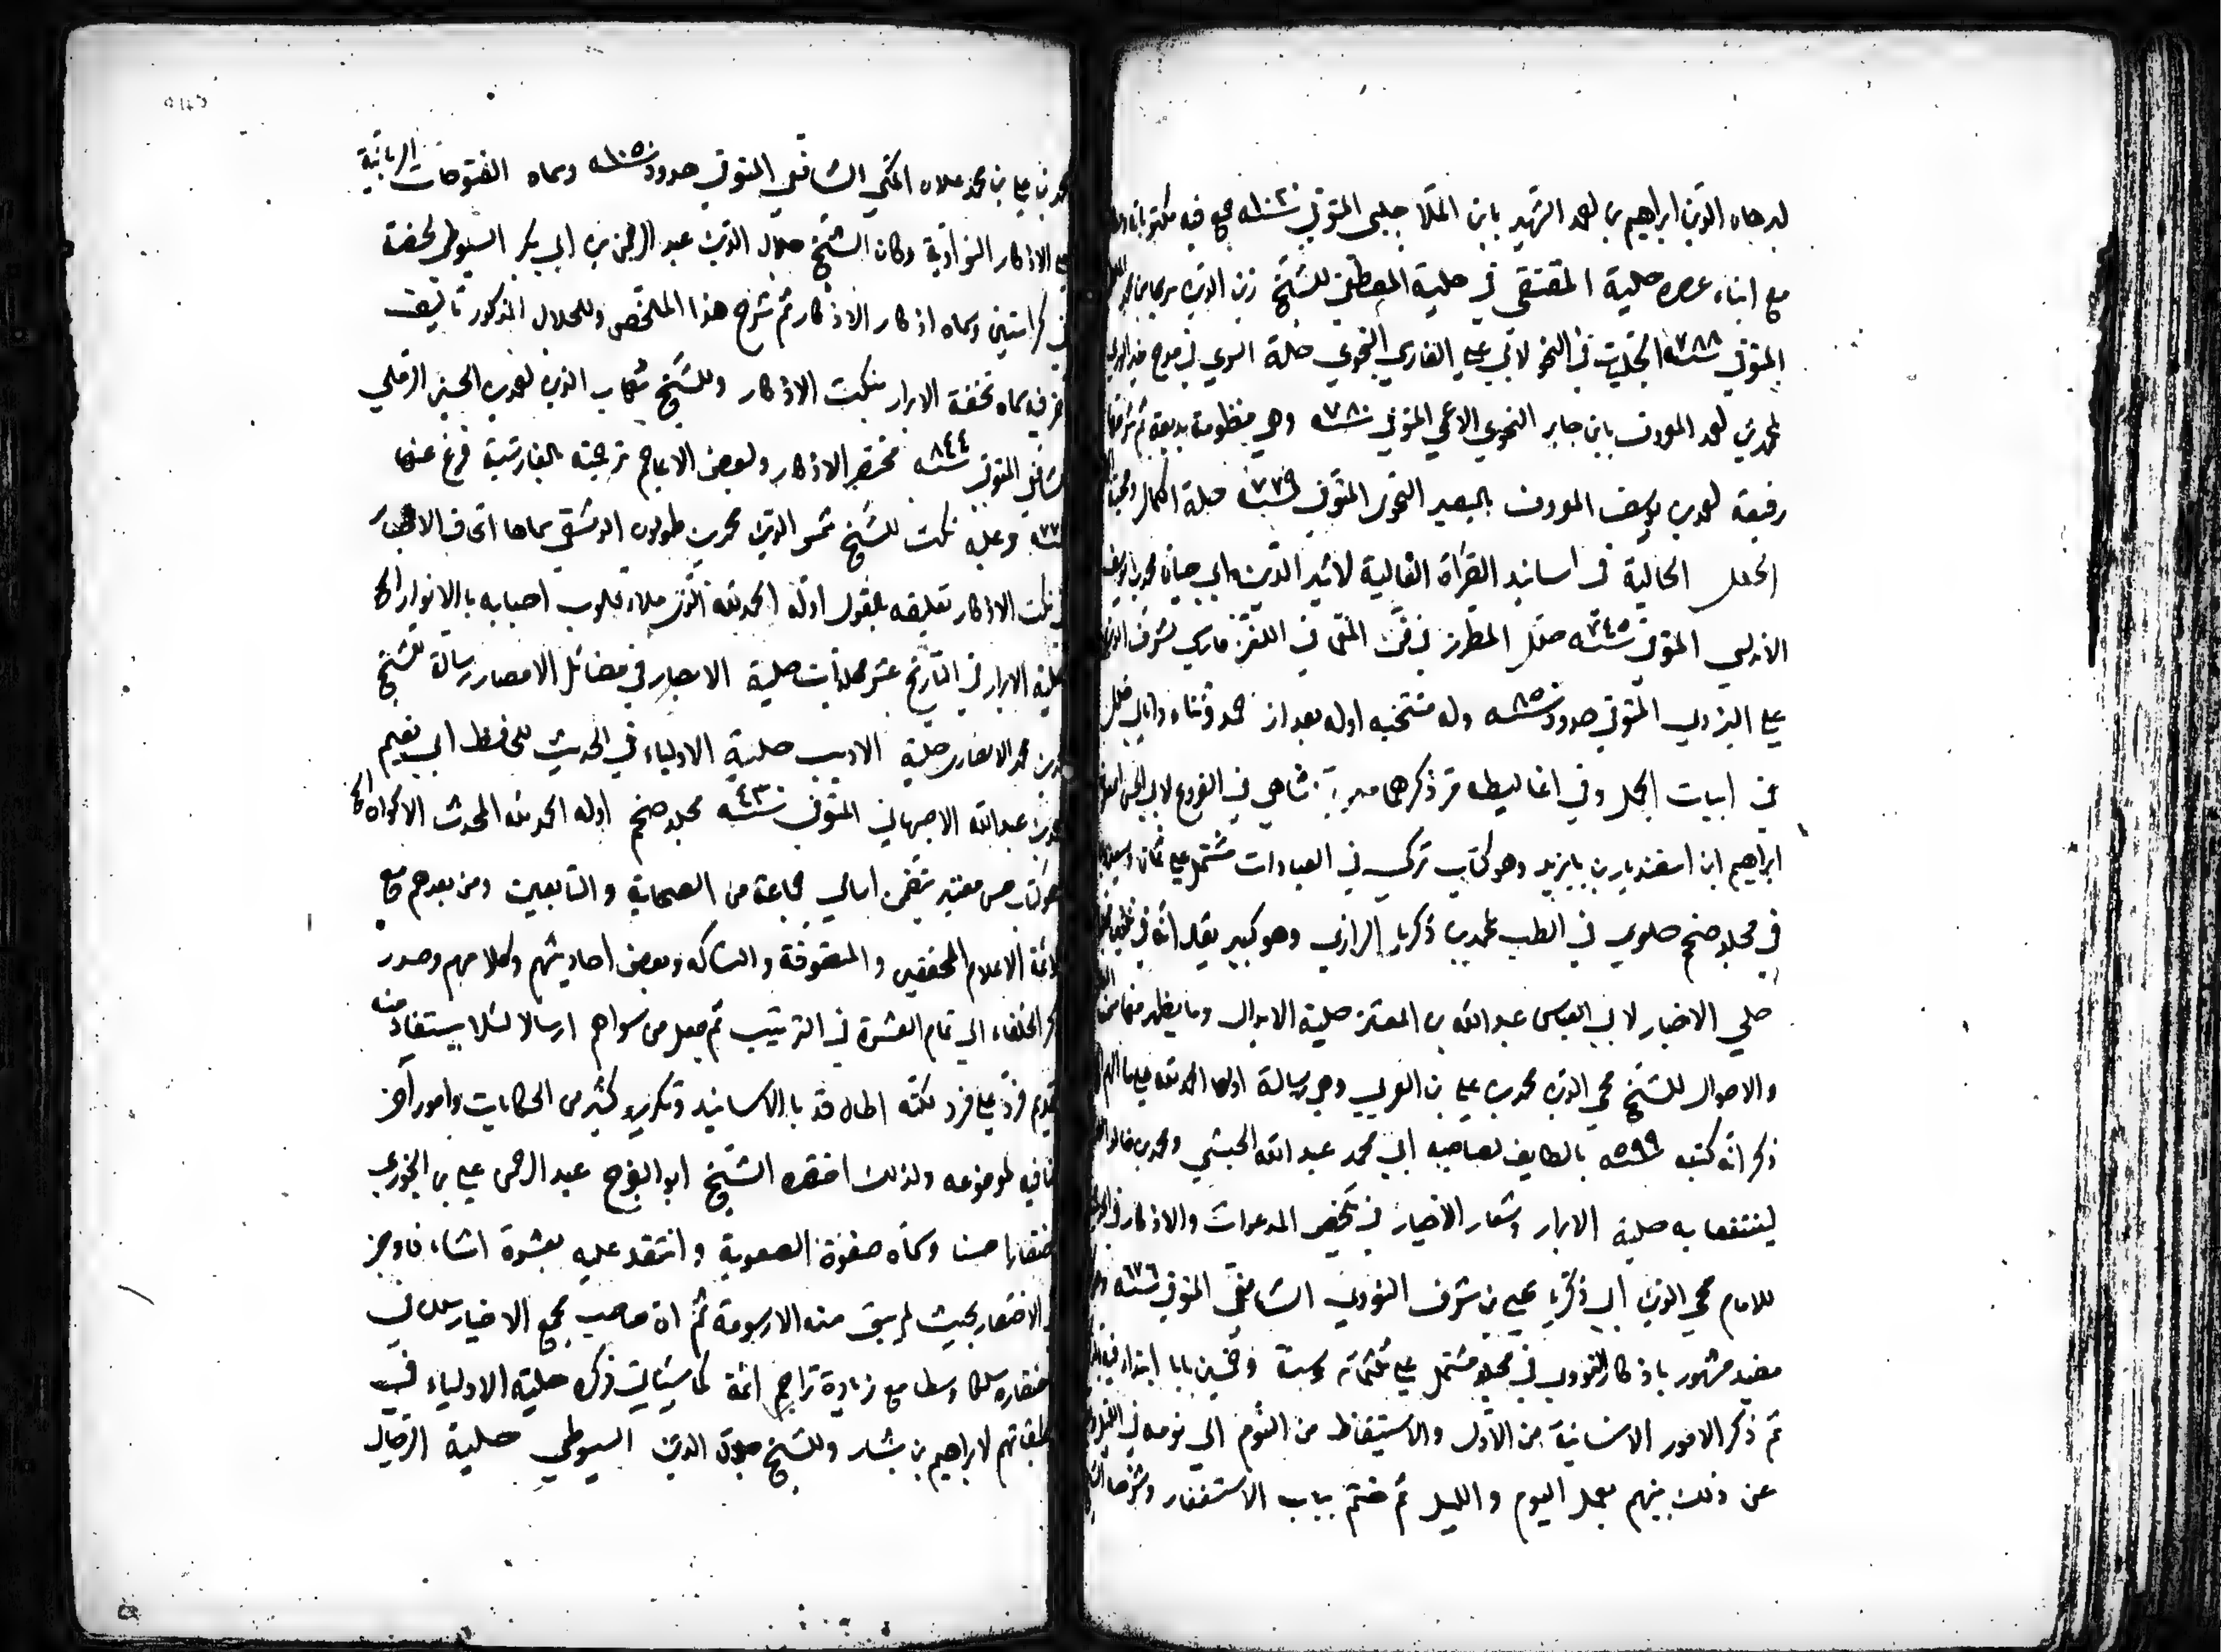 لبرهان الدين ابراهيم بن احمد الشهير بابن الملا جلبى المتوفى سنة ١٠٣٠ جمع فيه مكتوباته
مع ابناء عصره حلية المقتفى في حلية المصطفى للشيخ زين الدين
المتوفى سنة ٧٨٨ الحلبيات في النحو لابي علي الفارسي النحوي حلة السرى في مدح خير الورى
لمحمد بن احمد المعروف بابن جابر النحوي الاعمى المتوفى سنة ٧٨٠ وهي منظومة بديعة ثم شرحها
رفيقه احمد بن يوسف المعروف بالبصير النحوى المتوفى سنة ٧٧٩
الحلل الحالية في اسانيد القرأة العالية لاثير الدين ابي حيان محمد بن يوسف
الاندلسي المتوفى سنة ٧٤٥ حلل المطرز في فن المعمى في اللغز فارسي لشرف الدين
علي اليزدي المتوفى حدود سنة ٨٥٠ وله منتخبه اوله بعد از حمد وثناء
في ابيات الجمل وفي اغاليطه مر ذكرهما شاهي في الفروع
ابراهيم ابن اسفنديار بن بايزيد وهو كتاب تركي في العبادات مشتمل على ثمان
في مجلد ضخم حلوى في الطب لمحمد بن زكريا الرازي وهو كبير
حلي الاخبار لابي العباس عبد الله بن المعتز حلية الابدال وما يظهر منها من
والاحوال للشيخ محي الدين محمد بن علي بن العربي وهي رسالة اولها الحمد لله
ذكر انه كتبه سنة ٥٩٩ بالطايف لصاحبه ابي محمد عبد الله الحبشي ومحمد بن خالد
لينتفعا به حلية الابرار وشعار الاخيار في تلخيص الدعوات والاذكار
للامام محي الدين ابي زكريا يحيى بن شرف النووي الشافعي المتوفى سنة ٦٧٦
مفيد مشهور باذكار النووي في مجلد مشتمل على ثلثمائه وستة وخمسين بابا ابتداء فيه
ثم ذكر الامور الانسانية من الاول والاستيقاظ من النوم الي نومه في الليل
عن ذلك بينهم بعمل اليوم والليل ثم ختم بباب الاستغفار وشرحها
محمد بن علي بن محمد علان المكي الشافعي المتوفى حدود سنة ١٠٥٠ وسماه الفتوحات الربانية
على الاذكار النواوية وكان الشيخ جلال الدين عبد الرحمن بن ابي بكر السيوطى لخصه
في كراستين وسماه اذكار الاذكار ثم شرح هذا الملخص وللجلال المذكور تأليف
آخر فيه سماه تحفة الابرار بنكت الاذكار وللشيخ شهاب الدين احمد بن الحسين الرملي
الشافعي المتوفى سنة ٨٤٤ مختصر الاذكار ولبعض الاعاجم ترجمته بالفارسية فرغ عنها
وعليه نكت للشيخ شمس الدين محمد بن طولون الدمشقي سماها اتحاف الاخيار
في نكت الاذكار تعليقه بالقول اوله الحمد لله الذي ملاء قلوب احبابه بالانوار الخ
حلية الابرار في التاريخ عشر مجلدات حلية الامصار في فضائل الامصار رسالة للشيخ
محمد بن محمد الانصارى حلية الاديب حلية الاولياء في الحديث للحافظ ابي نعيم
احمد بن عبد الله الاصبهاني المتوفى سنة ٤٣٠ مجلد ضخم اوله الحمد لله المحدث الاكوان الخ
وهو كتاب حسن معتبر يتضمن اسامي جماعة من الصحابة والتابعين ومن بعدهم مع
الائمة الاعلام المحققين والمتصوفة والنساك وبعض احاديثهم وكلامهم وصدر
ذكر الخلفاء الى تمام العشرة في الترتيب ثم جعل من سواهم ارسالا لئلا يستفاد منه
تقديم فرد على فرد لكنه اطال فيه بالاسانيد وتكرير كثير من الحكايات وامور آخر
منافية لموضوعه ولذلك اختصره الشيخ ابو الفرج عبد الرحمن علي بن الجوزي
اختصارا حسنا وسماه صفوة الصفوة وانتقد عليه بعشرة اشياء فاوجز
في الاختصار بحيث لم يبق منه الا رسومه ثم ان صاحب مجمع الاخيار سلك في
اختصاره مسلكا وسطا مع زيادة تراجم ائمة كما سيأتي ذكره حلية الاولياء في
طبقاتهم لابراهيم بن بشار وللشيخ جلال الدين السيوطي حلية الرجال